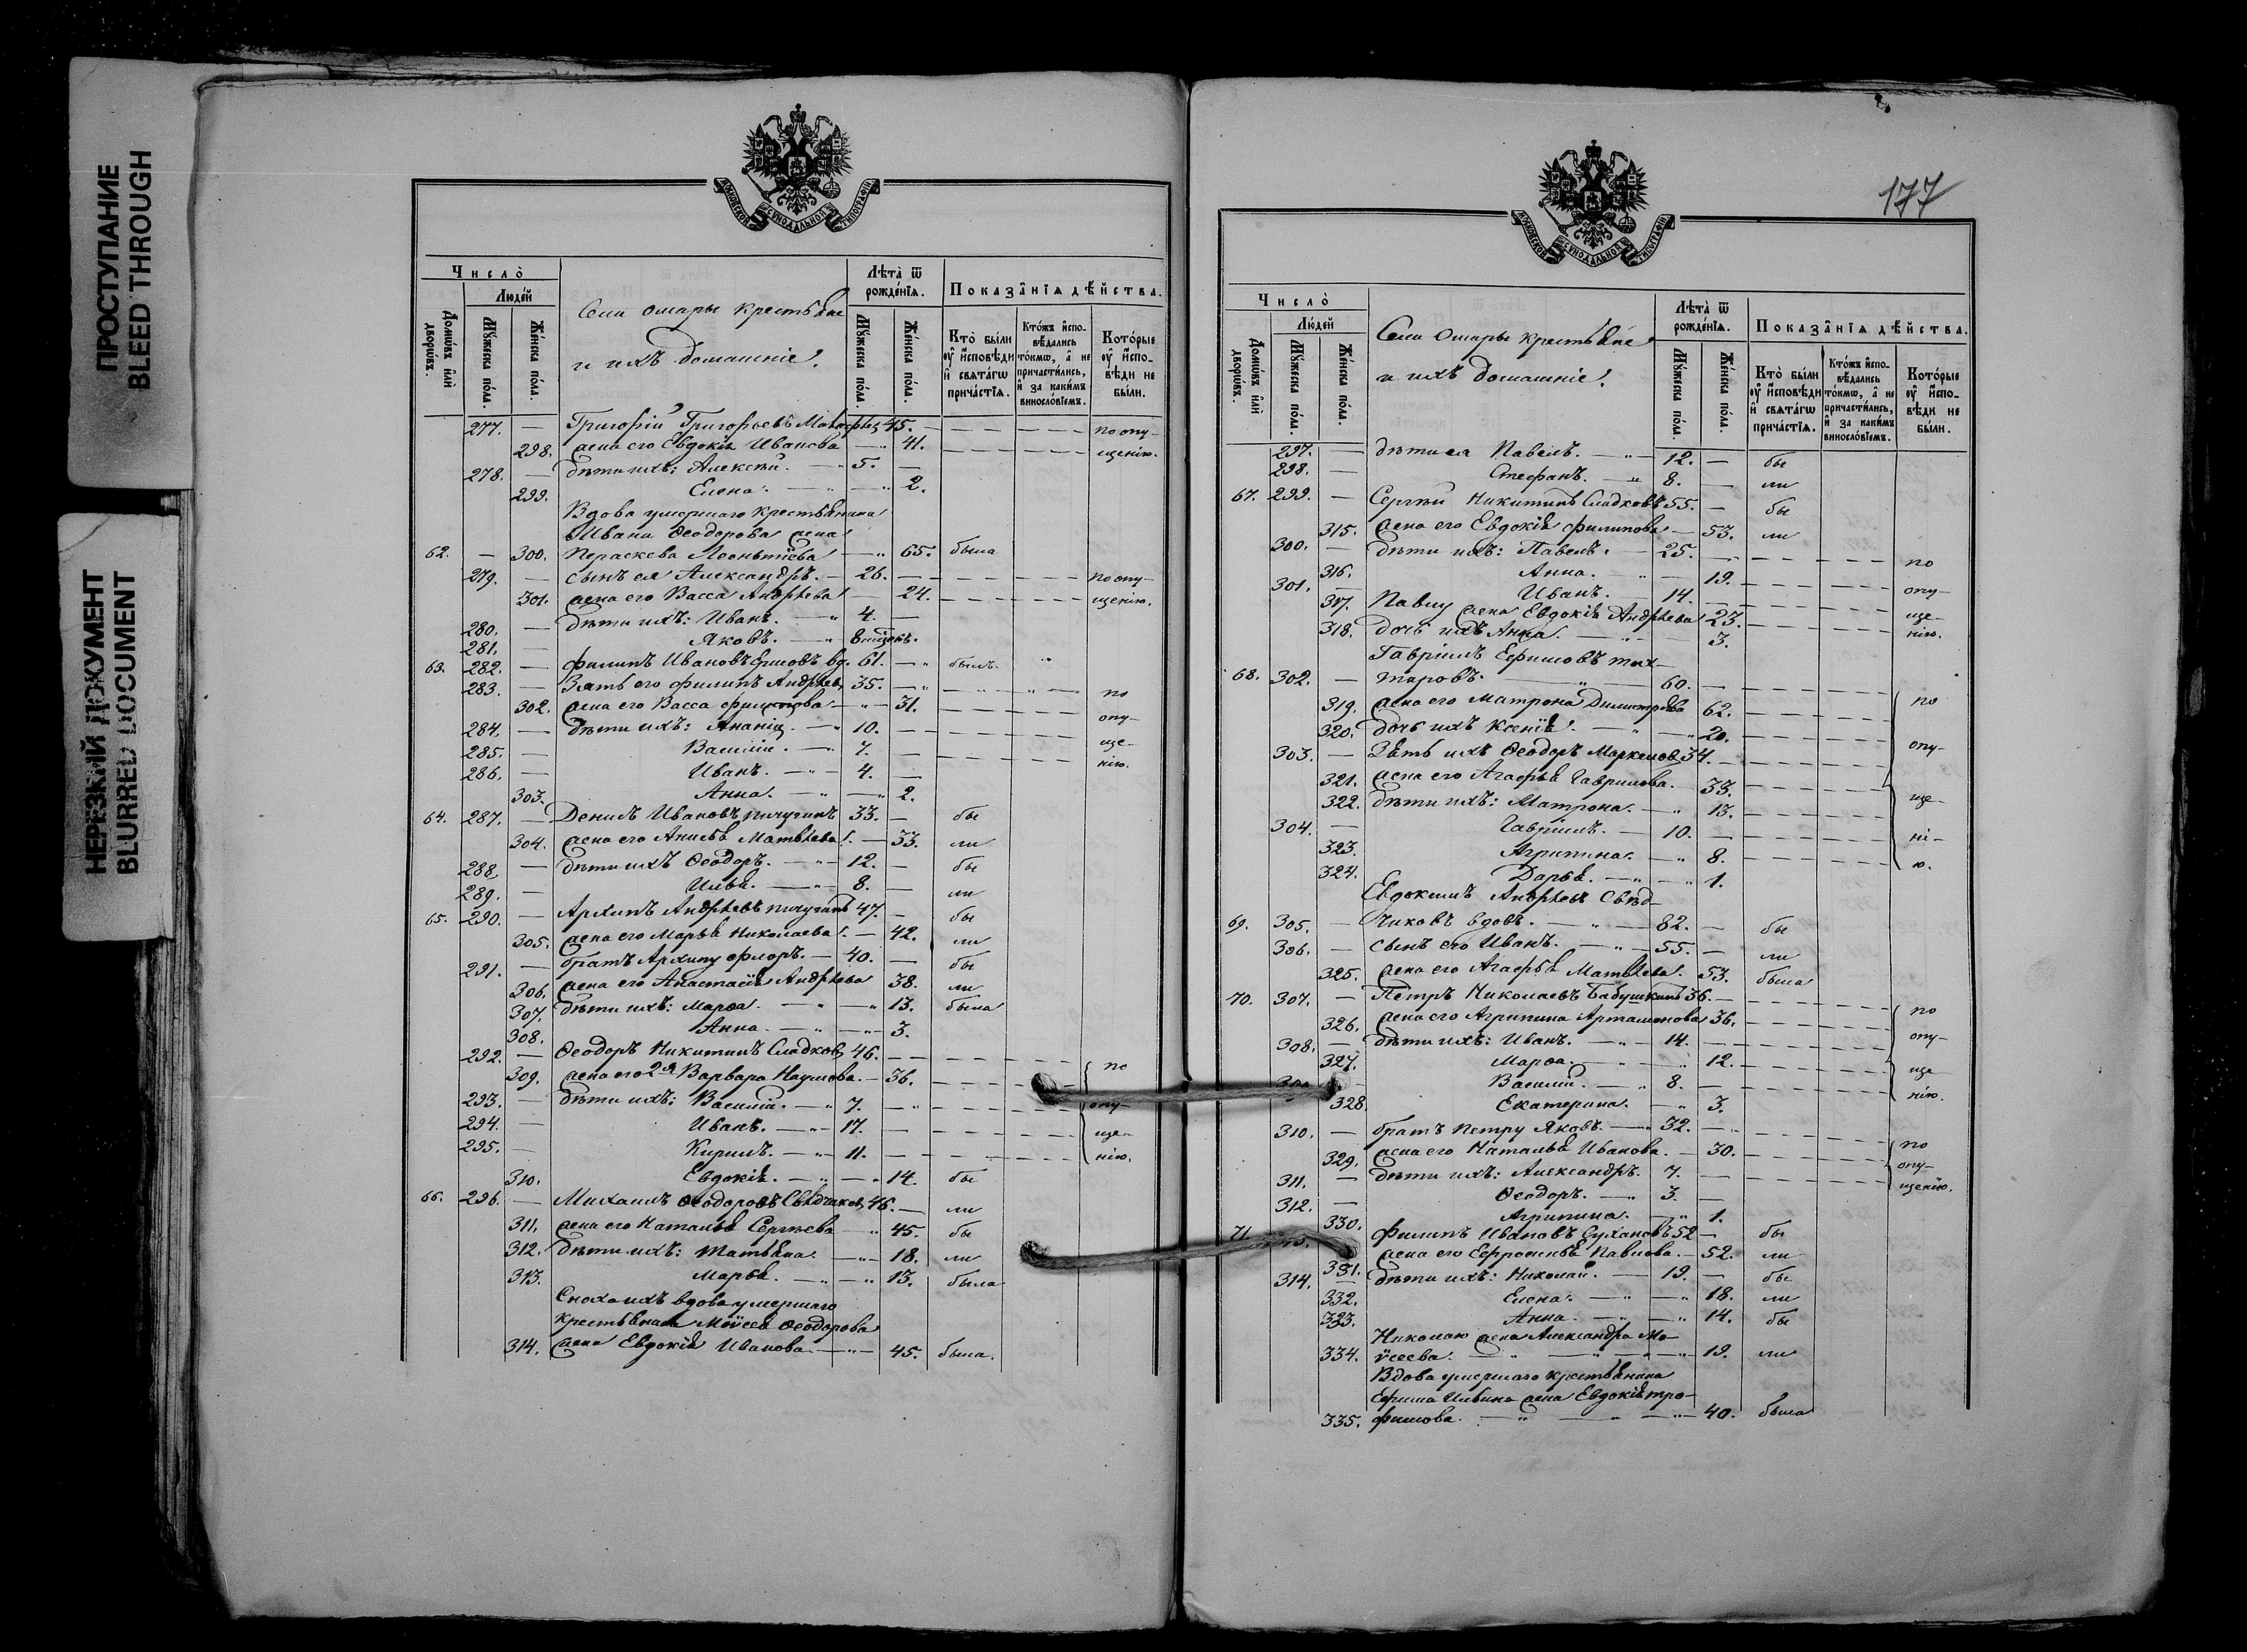 ПРОСТУПАНИЕ
BLEED THROUGH
НЕРЕЗКИЙ ДОКУМЕНТ
BLURRED DOCUMENT
МОСКОВСКОЙ СѴНОДАЛЬНОЙ ТИПОГРАФІИ
Число̀
Людей
Домѡвъ илѝ дворѡвъ.
Мꙋжеска пола.
Женска пола.
Села Омары крестьяне
и ихъ домашніе.
Лѣта̀ ѿ рожденїѧ.
Мꙋжеска пола.
Женска пола.
Показанїѧ дѣйства.
Кто̀ были ᲂу҆ и҆сповѣди и҆ свѧтагѡ причастїѧ.
Ктожъ и҆сповѣдались токмѡ, а҆ не причастились, и҆ за какимъ винословїемъ.
Которые ᲂу҆ и҆сповѣди не были.
277. — Григорій Григорьевъ 45. — по опу-
298. жена его Евдокія Иванова — 41. щенію.
278. — дѣти ихъ: Алексѣй. — 5. —
299. Елена. — 2.
Вдова умершаго крестьянина
Ивана Ѳеодорова жена
62. — 300. Параскева Леонтіева — 65. была
279. — сынъ ея Александръ. — 26. — по опу-
301. жена его Васса Андреева — 24. щенію.
280. — дѣти ихъ: Иванъ. — 4. —
281. — Яковъ. — 8
63. 282. — Филипъ Ивановъ вд. 61. — былъ
283. — Зять его Филипъ Андреевъ 35. — по
302. жена его Васса Филипова — 31. опу-
284. — дѣти ихъ: Ананія. — 10. — ще-
285. — Василій. — 7. — нію.
286. — Иванъ. — 4. —
303. Анна. — 2.
64. 287. — Денилъ Ивановъ Пичугинъ 33. — бы
304. жена его Анисья Матвѣева. — 33. ли
288. — дѣти ихъ Ѳеодоръ. — 12. — бы
289. — Илья. — 8. — ли
65. 290. — Архипъ Андреевъ Пичугинъ 47. — бы
305. жена его Марья Николаева. — 42. ли
291. — братъ Архипу Флоръ. — 40. — бы
306. жена его Анастасія Андреева 38. ли
307. дѣти ихъ: Марѳа. — 13. была
308. Анна. — 3.
292. — Ѳеодоръ Никитинъ Сладковъ 46. — по
309. жена его 2я Варвара Наумова. — 36. опу-
293. — дѣти ихъ: Василій. — 7. — ще-
294. — Иванъ. — 17. — нію.
295. — Кирилъ. — 11. —
310. Евдокія. — 14. бы
66. 296. — Михаилъ Ѳеодоровъ 46. — ли
311. жена его Наталья Сергѣева — 45. бы
312. дѣти ихъ: Татьяна. — 18. ли
313. Марья. — 13. была
Сноха ихъ вдова умершаго
крестьянина Моѵсея Ѳеодорова
314. жена Евдокія Иванова. — 45. была.
177
МОСКОВСКОЙ СѴНОДАЛЬНОЙ ТИПОГРАФІИ
Число̀
Людей
Домѡвъ илѝ дворѡвъ.
Мꙋжеска пола.
Женска пола.
Села Омары крестьяне
и ихъ домашніе.
Лѣта̀ ѿ рожденїѧ.
Мꙋжеска пола.
Женска пола.
Показанїѧ дѣйства.
Кто̀ были ᲂу҆ и҆сповѣди и҆ свѧтагѡ причастїѧ.
Ктожъ и҆сповѣдались токмѡ, а҆ не причастились, и҆ за какимъ винословїемъ.
Которые ᲂу҆ и҆сповѣди не были.
297. — дѣти ея Павелъ. — 12. — бы
298. — Стефанъ. — 8. — ли
67. 299. — Сергѣй Никитинъ Сладковъ 55. — бы
315. жена его Евдокія Филипова — 53. ли
300. — дѣти ихъ: Павелъ. — 25. — по
316. Анна. — 19. опу-
301. — Иванъ. — 14. — ще-
317. Павлу жена Евдокія Андреева 23. нію.
318. дочь ихъ Анна. — 3.
Гавріилъ Ефимовъ
68. 302. — таровъ. — 60. — по
319. жена его Матрона Димитріева 62. опу-
320. дочь ихъ Ксенія. — 20. ще-
303. — Зять ихъ Ѳеодоръ Маркеловъ 34. — ні-
321. жена его Агафья Гаврилова. — 33. ю.
322. дѣти ихъ: Матрона. — 13.
304. — Гавріилъ. — 10. —
323. Агрипина. — 8.
324. Дарья. — 1.
Евдокимъ Андреевъ
69. 305. — чиковъ вдовъ. — 82. — бы
306. — сынъ его Иванъ. — 55. — ли
325. жена его Агафья Матвѣева. 53. была
70. 307. — Петръ Николаевъ Бабушкинъ 36. — по
326. жена его Агрипина Артамонова 36. опу-
308. — дѣти ихъ: Иванъ. — 14. — ще-
327. Марѳа. — 12. нію.
Василій. — 8. —
328. Екатерина. — 3.
310. — братъ Петру Яковъ. — 32. — по
329. жена его Наталья Иванова. — 30. опу-
311. — дѣти ихъ: Александръ. 7. — щенію.
312. — Ѳеодоръ. — 3. —
330. Агрипина. — 1.
71. Филипъ Ивановъ Сухановъ 52 — бы
331. жена его Ефросинья Павлова. — 52. ли
314. — дѣти ихъ: Николай. — 19. — бы
332. Елена. — 18. ли
323. Анна. — 14. бы
Николаю жена Александра Мо-
334. ѵсеева. — 19. ли
Вдова умершаго крестьянина
Ефима Ильина жена Евдокія Тро-
335. фимова. — 40. была